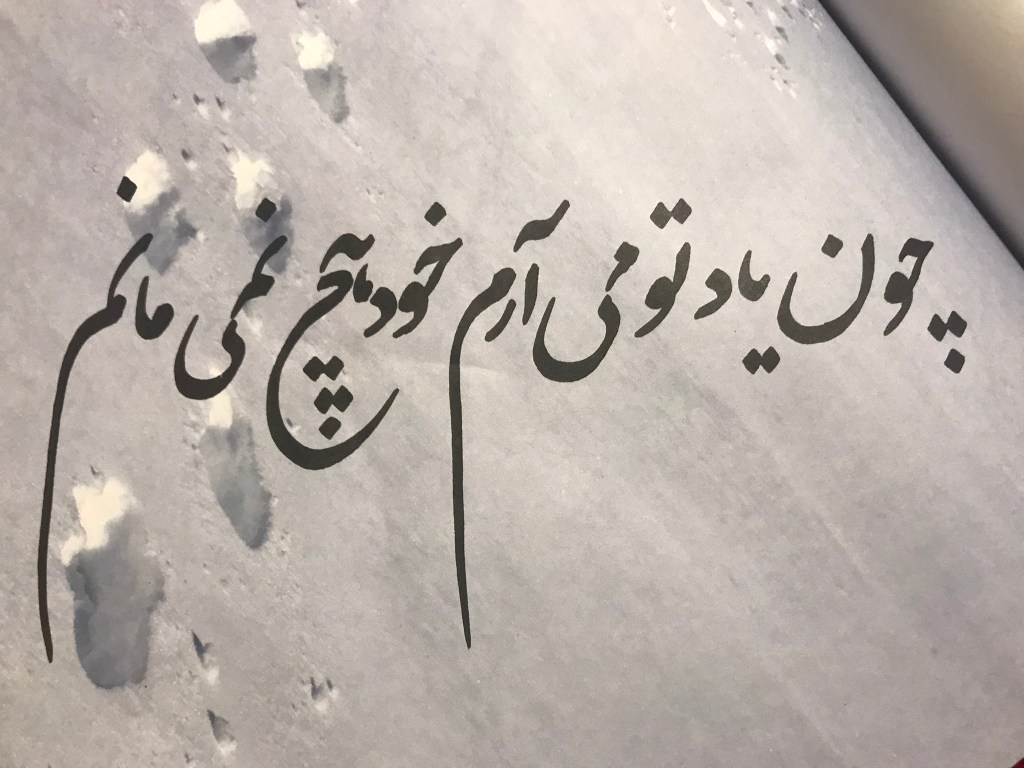 چون یاد تو می آرم خود هیچ نمی مانم